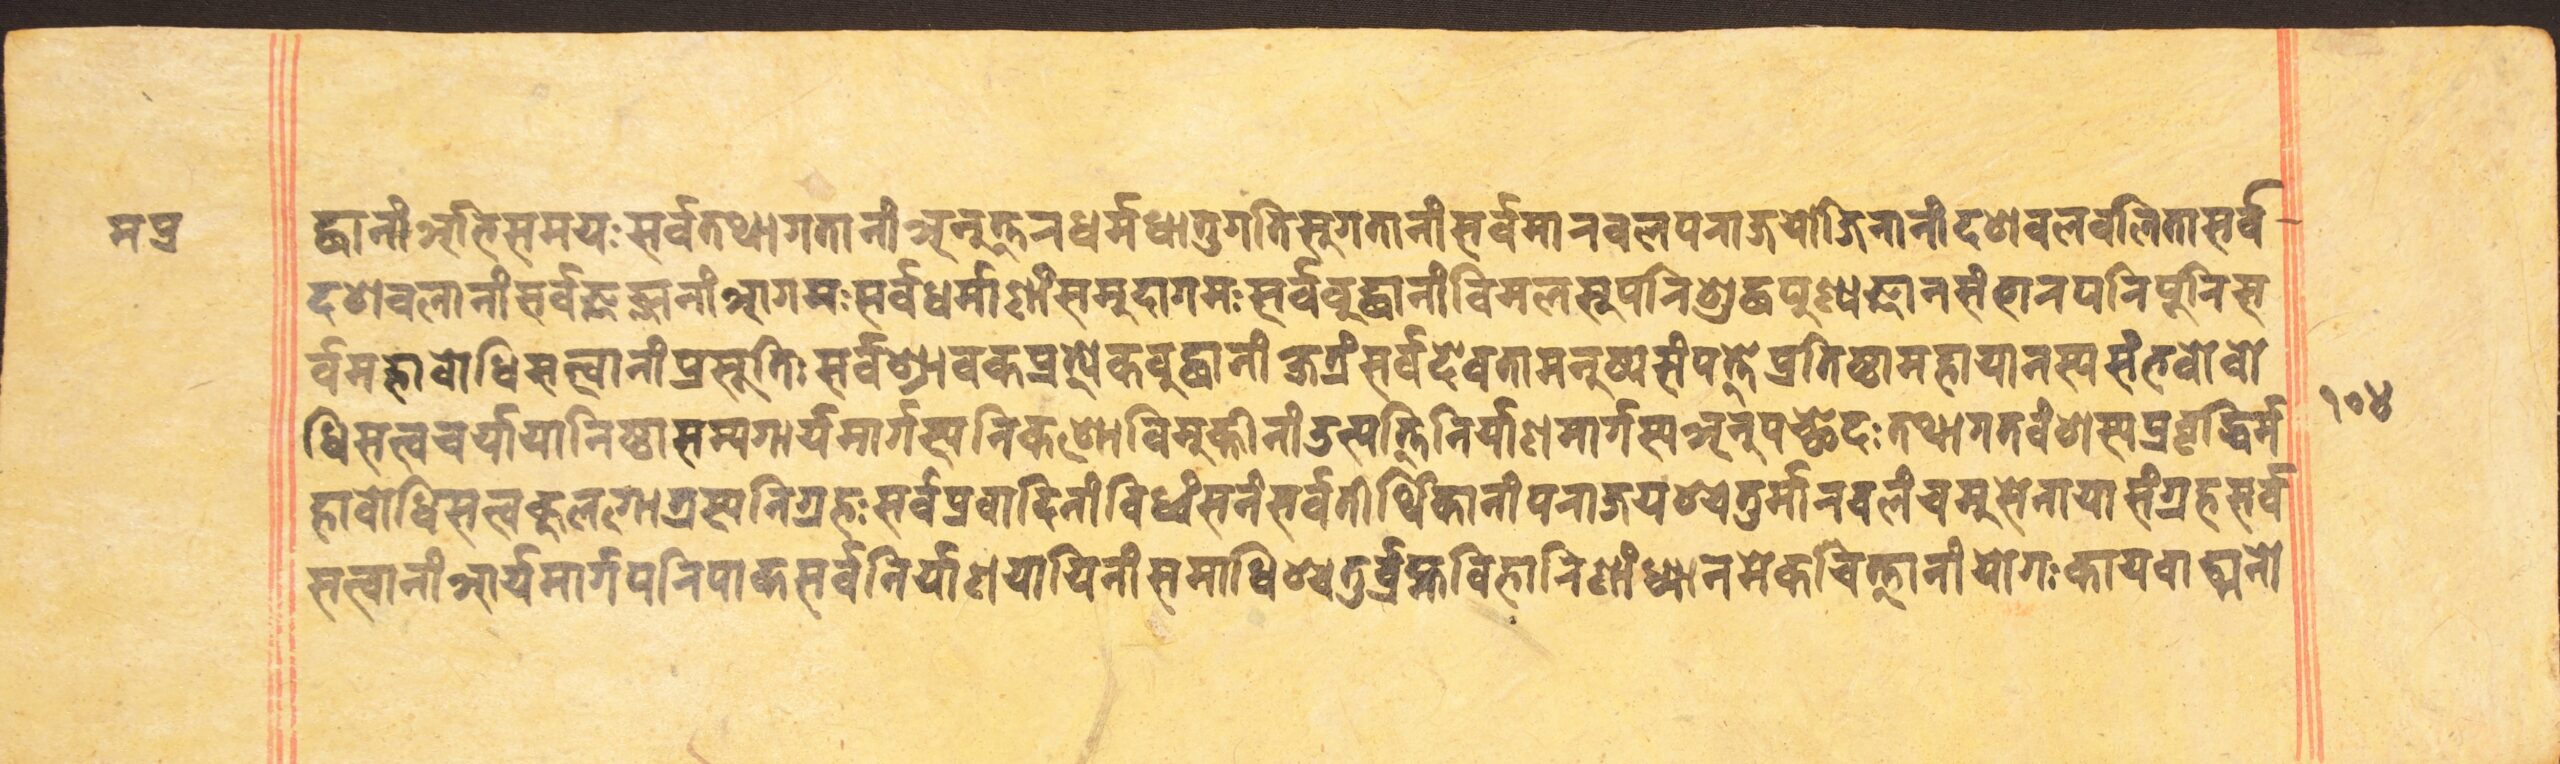 मप्र
द्धानांअभिसमयःसर्वतथागतानांअनुत्तरधर्मधातुगतिसुगतानांसर्वमारवलपराजयोजिनानांदशवलवलितासर्व-
दशवलानांसर्वज्ञज्ञानांआगमःसर्वधर्माणांसमुदागमःसर्ववुद्धानांविमलसुपरिशुद्धपुण्यज्ञानसंभारपरिपूरिस
र्वमहावोधिसत्वानांप्रसूतिःसर्वश्रावकप्रत्येकवुद्धानांक्षत्रंसर्वदेवतामनुष्यसंपत्तेप्रतिष्ठामहायानस्यसंभवोवो
१०४
धिसत्वचर्यायानिष्ठासम्यगार्यमार्गस्यनिकशोविमुक्तीनांउत्पत्तिनिर्याणमार्गस्यअनुपच्छेदःतथागतवंशस्यप्रवृद्धिर्म
हावोधिसत्वकुलगोत्रस्यनिग्रहःसर्वप्रवादिनांविध्वंसनंसर्वतीर्थिकानांपराजयश्चेतुर्मारवलंचमुसेनायासंग्रहसर्व
सत्वानांआर्यमार्गपरिपाकसर्वनिर्याणयायिनांसमाधिश्चेतुर्व्रह्मविहारिणांध्यानमेकचित्तानांयोगःकायवाङ्मनो